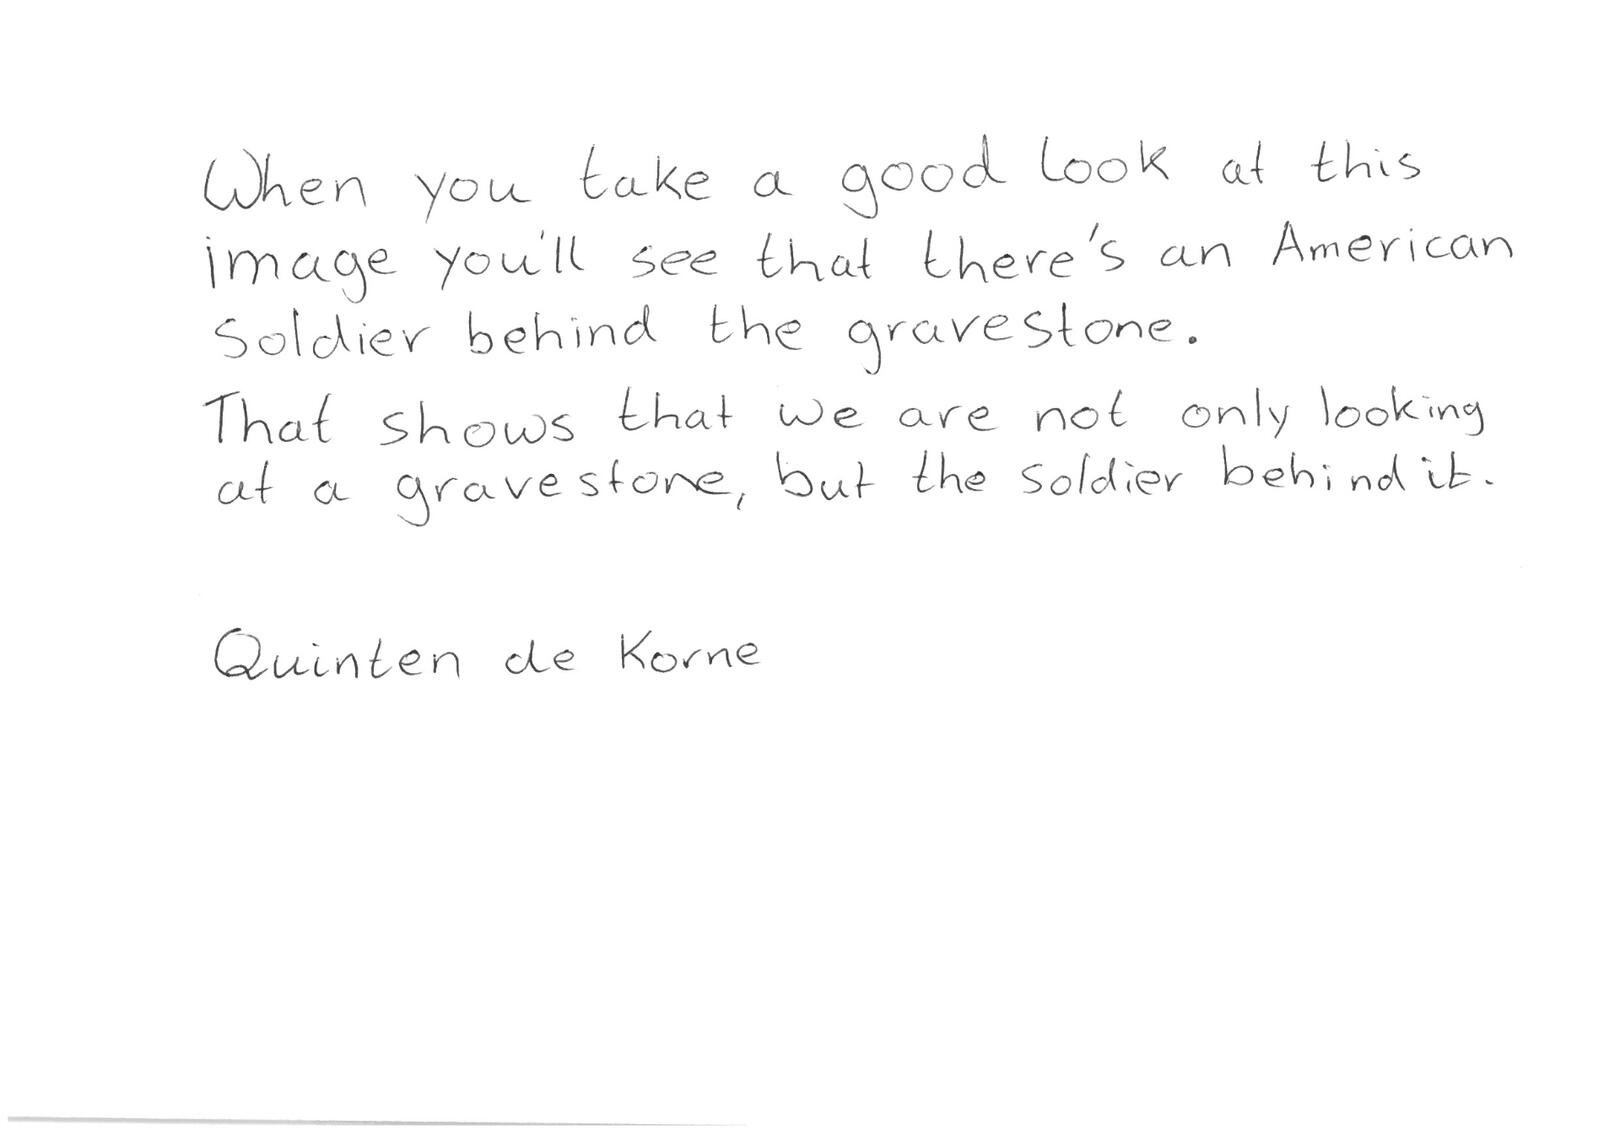 When you take a good look at this
image you'll see that there's an American
Soldier behind the gravestone.
That shows that we are not only looking
at a gravestone, but the soldier behind it.
Quinten de Korne